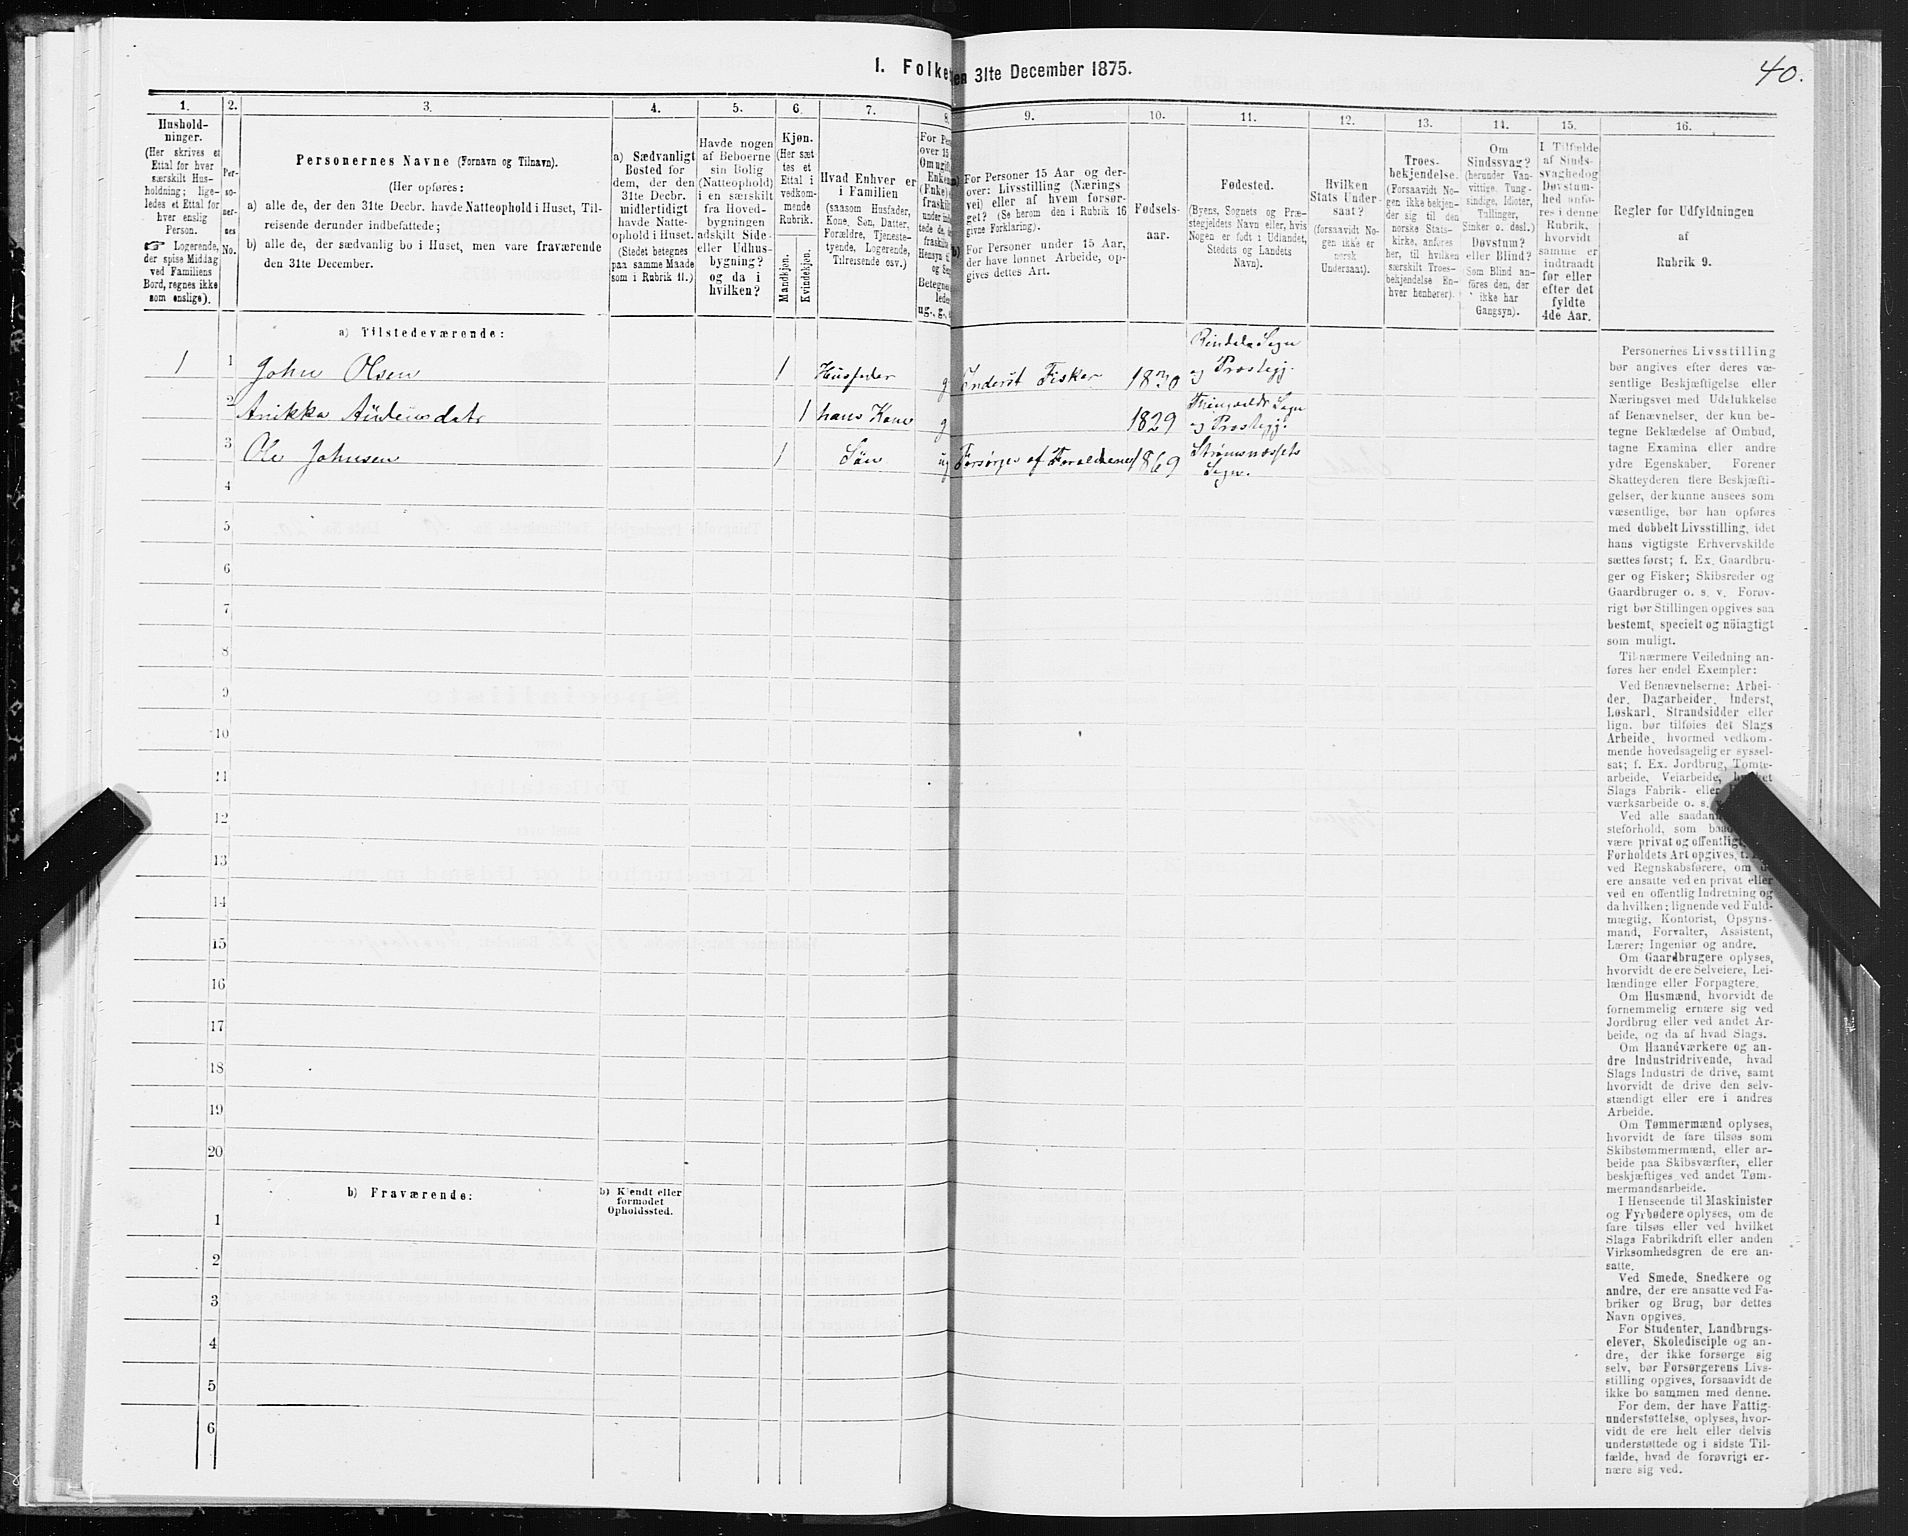 1. Folke
en 31te December 1875.
40.
1.
2.
3.
4.
5.
6.
7.
8.
9.
10.
11.
12.
13.
14.
15.
16.
Hushold-
ninger.
(Her skrives et
Ettal for hver
særskilt Hus-
holdning; lige-
ledes et Ettal for
hver enslig
Person.
☞ Logerende,
der spise Middag
ved Familiens
Bord, regnes ikke
som enslige).
Per-
so-
ner-
nes
No.
Personernes Navne (Fornavn og Tilnavn).
(Her opføres:
a) alle de, der den 31te Decbr. havde Natteophold i Huset, Til-
reisende derunder indbefattede;
b) alle de, der sædvanlig bo i Huset, men vare fraværende
den 31te December.
a) Sædvanligt
Bosted for
dem, der den
31te Decbr.
midlertidigt
havde Natte-
ophold i Huset.
(Stedet betegnes
paa samme Maade
som i Rubrik 11.)
Havde nogen
af Beboerne
sin Bolig
(Natteophold)
i en særskilt
fra Hoved-
bygningen
adskilt Side-
eller Udhus-
bygning?
og da i
hvilken?
Kjøn.
(Her sæt-
tes et
Ettal i
vedkom-
mende
Rubrik.
Mandkjøn.
Kvindekjøn.
Hvad Enhver er
i Familien
(saasom Husfader,
Kone, Søn, Datter,
Forældre, Tjeneste-
tyende, Logerende,
Tilreisende osv.)
For Pe
over 15
Om ugift
Enkem
(Enke)
fraskilt
under indt
tede de,
fraskilte
Hensyn t
og Se
Betegnes
lede
ug., g.,
a) For Personer 15 Aar og der-
over: Livsstilling (Nærings
vei) eller af hvem forsør-
get? (Se herom den i Rubrik 16
givne Forklaring).
b) For Personer under 15 Aar,
der have lønnet Arbeide, op-
gives dettes Art.
Fødsels-
aar.
Fødested.
(Byens, Sognets og Præ-
stegjeldets Navn eller, hvis
Nogen er født i Udlandet,
Stedets og Landets
Navn).
Hvilken
Stats Under-
saat?
(forsaavidt No-
gen ikke er
norsk
Undersaat).
Troes-
bekjendelse.
(Forsaavidt No-
gen ikke bekjen-
der sig til den
norske Stats-
kirke, anføres
her, til hvilken
særskilt Troes-
bekjendelse En-
hver henhører).
Om
Sindssvag?
(herunder Van-
vittige, Tung-
sindige, Idioter,
Tullinger,
Sinker o. desl.)
Døvstum?
eller Blind?
(Som Blind an-
føres den, der
ikke har
Gangsyn).
I Tilfælde
af Sinds-
svaghed og
Døvstum-
hed anfø-
res i denne
Rubrik,
hvorvidt
samme er
indtraadt
før eller
efter det
fyldte
4de Aar.
Regler for Udfyldningen
af
Rubrik 9.
a) Tilstedeværende:
1 1 John Olsen 1 Husfader g Inderst Fisker 1830 Rindals Sogn
og Præstegj.
2 Anikka 1 hans Kone g 1829 Thingvolds Sogn
og Præstegj.
3 Ole Johnsen 1 Søn ug Forsørges af Forældrene 1869 Strømsnæssets
Sogn.
4
5
6
7
8
9
10
11
12
13
14
15
16
17
18
19
20
b) Fraværende:
b) Kjendt eller
formodet
Opholdssted.
1
2
3
4
5
6
Personernes Livsstilling
bør angives efter deres væ-
sentlige Beskjæftigelse eller
Næringsvei med Udelukkelse
af Benævnelser, der kun be-
tegne Beklædelse af Ombud,
tagne Examina eller andre
ydre Egenskaber. Forener
Skatteyderen flere Beskjæfti-
gelser, der kunne ansees som
væsentlige, bør han opføres
med dobbelt Livsstilling, idet
hans vigtigste Erhvervskilde
sættes først; f. Ex. Gaardbru-
ger og Fisker; Skibsreder og
Gaardbruger o. s. v. Forøv-
rigt bør Stillingen opgives saa
bestemt, specielt og nöiagtigt
som muligt.
Til nærmere Veiledning an-
føres her endel Exempler:
Ved Benævnelserne: Arbei-
der, Dagarbeider, Inderst,
Løskarl, Strandsidder eller
lign. bør tilføies det Slags
Arbeide, hvormed vedkom-
mende hovedsagelig er syssel-
sat; f. Ex. Jordbrug, Tomte-
arbeide, Veiarbeide, hvilket
Slags Fabrik- eller
værksarbeide o. s. v.
Ved alle saadanne
steforhold, som baade
være privat og offentligt,
Forholdets Art opgives, t.
ved Regnskabsførere, om de
ere ansatte ved en privat eller
ved en offentlig Indretning og
da hvilken; lignende ved Fuld-
mægtig, Kontorist, Opsyns-
mand, Forvalter, Assistent,
Lærer; Ingeniør og andre.
Om Gaardbrugere oplyses,
hvorvidt de ere Selveiere, Lei-
lændinge eller Forpagtere.
Om Husmænd, hvorvidt de
fornemmelig ernære sig ved
Jordbrug eller ved andet Ar-
beide, og da af hvad Slags.
Om Haandværkere og an-
dre Industridrivende, hvad
Slags Industri de drive, samt
hvorvidt de drive den selv-
stændigt eller ere i andres
Arbeide.
Om Tømmermænd oplyses,
hvorvidt de fare tilsøs som
Skibstømmermænd, eller ar-
beide paa Skibsværfter, eller
beskjæftiges ved andet Tøm-
mermandsarbeide.
I Henseende til Maskinister
og Fyrbødere oplyses, om de
fare tilsøs eller ved hvilket
Slags Fabrikdrift eller anden
Virksomhedsgren de ere an-
satte.
Ved Smede, Snedkere og
andre, der ere ansatte ved Fa-
briker og Brug, bør dettes
Navn opgives.
For Studenter, Landbrugs-
elever, Skoledisciple og an-
dre, der ikke forsørge sig
selv, bør Forsørgerens Livs-
stilling opgives, forsaavidt de
ikke bo sammen med denne.
For dem, der have Fattig-
understøttelse, oplyses, hvor-
vidt de ere helt eller delvis
understøttede og i sidste Til-
fælde, hvad de forøvrigt er-
nære sig ved.